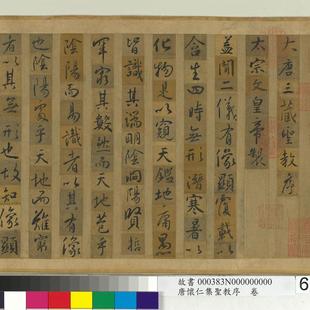 大唐三藏聖教序
太宗文皇帝製
蓋聞二儀有像顯覆載以
含生四時無形潛寒暑以
化物是以窺天鑑地庸愚
皆識其端明陰洞陽賢哲
罕窮其數然而天地苞乎
陰陽而易識者以其有像
也陰陽處乎天地而難窮
者以其無形也故知像顯
故書 000383N000000000
唐懷仁集聖教序 卷
6